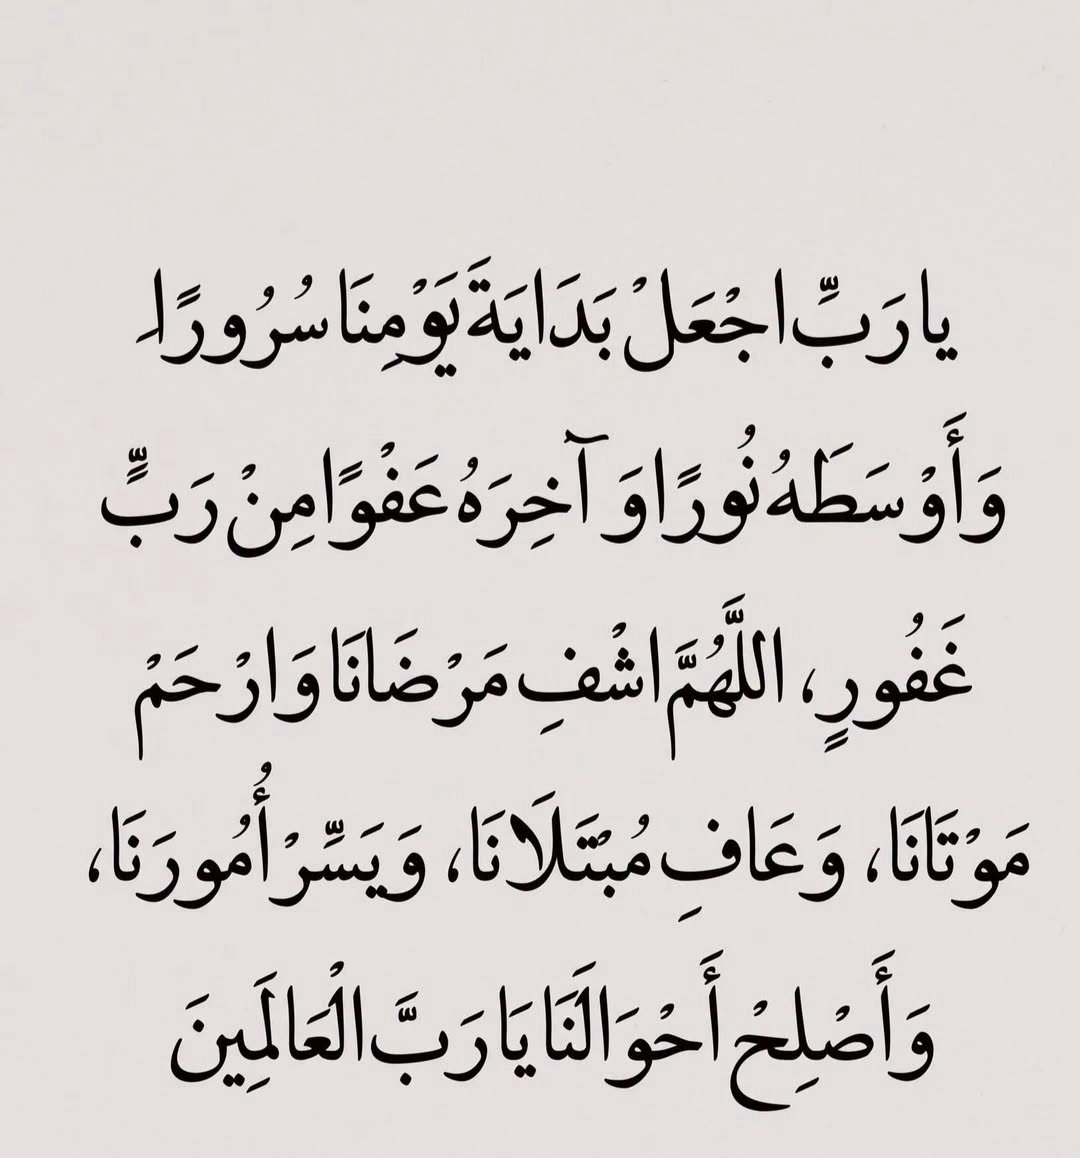 يا رَبِّ اجْعَلْ بَدَايَةَ يَوْمِنَا سُرُورًا
وَأَوْسَطَهُ نُورًا وَ آخِرَهُ عَفْوًا مِنْ رَبٍّ
غَفُورٍ، اللَّهُمَّ اشْفِ مَرْضَانَا وَارْحَمْ
مَوْتَانَا، وَعَافِ مُبْتَلَانَا، وَيَسِّرْ أُمُورَنَا،
وَأَصْلِحْ أَحْوَالَنَا يَا رَبَّ الْعَالَمِينَ